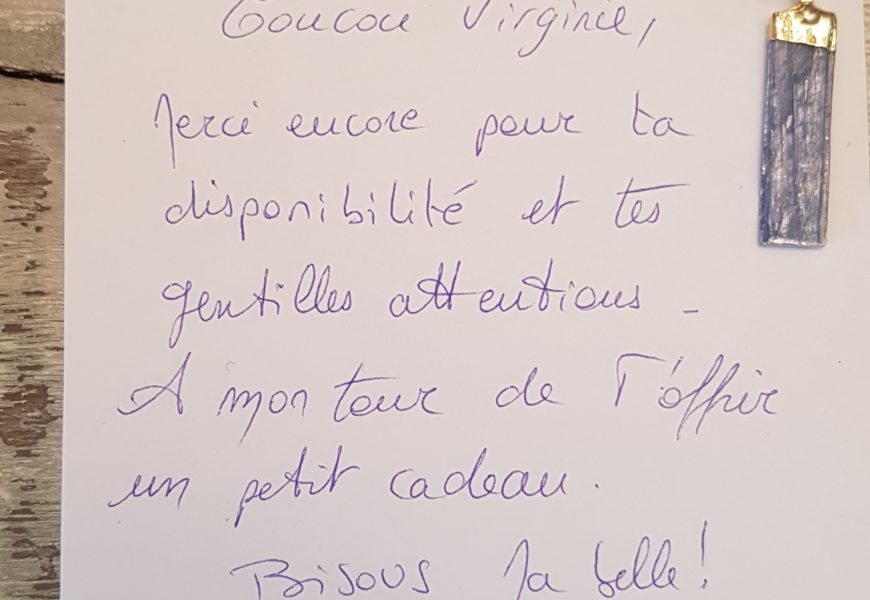 Coucou Virginie,
Merci encore pour ta
disponibilité et tes
gentilles attentions -
A mon tour de t'offrir
un petit cadeau.
Bisous Ma belle!